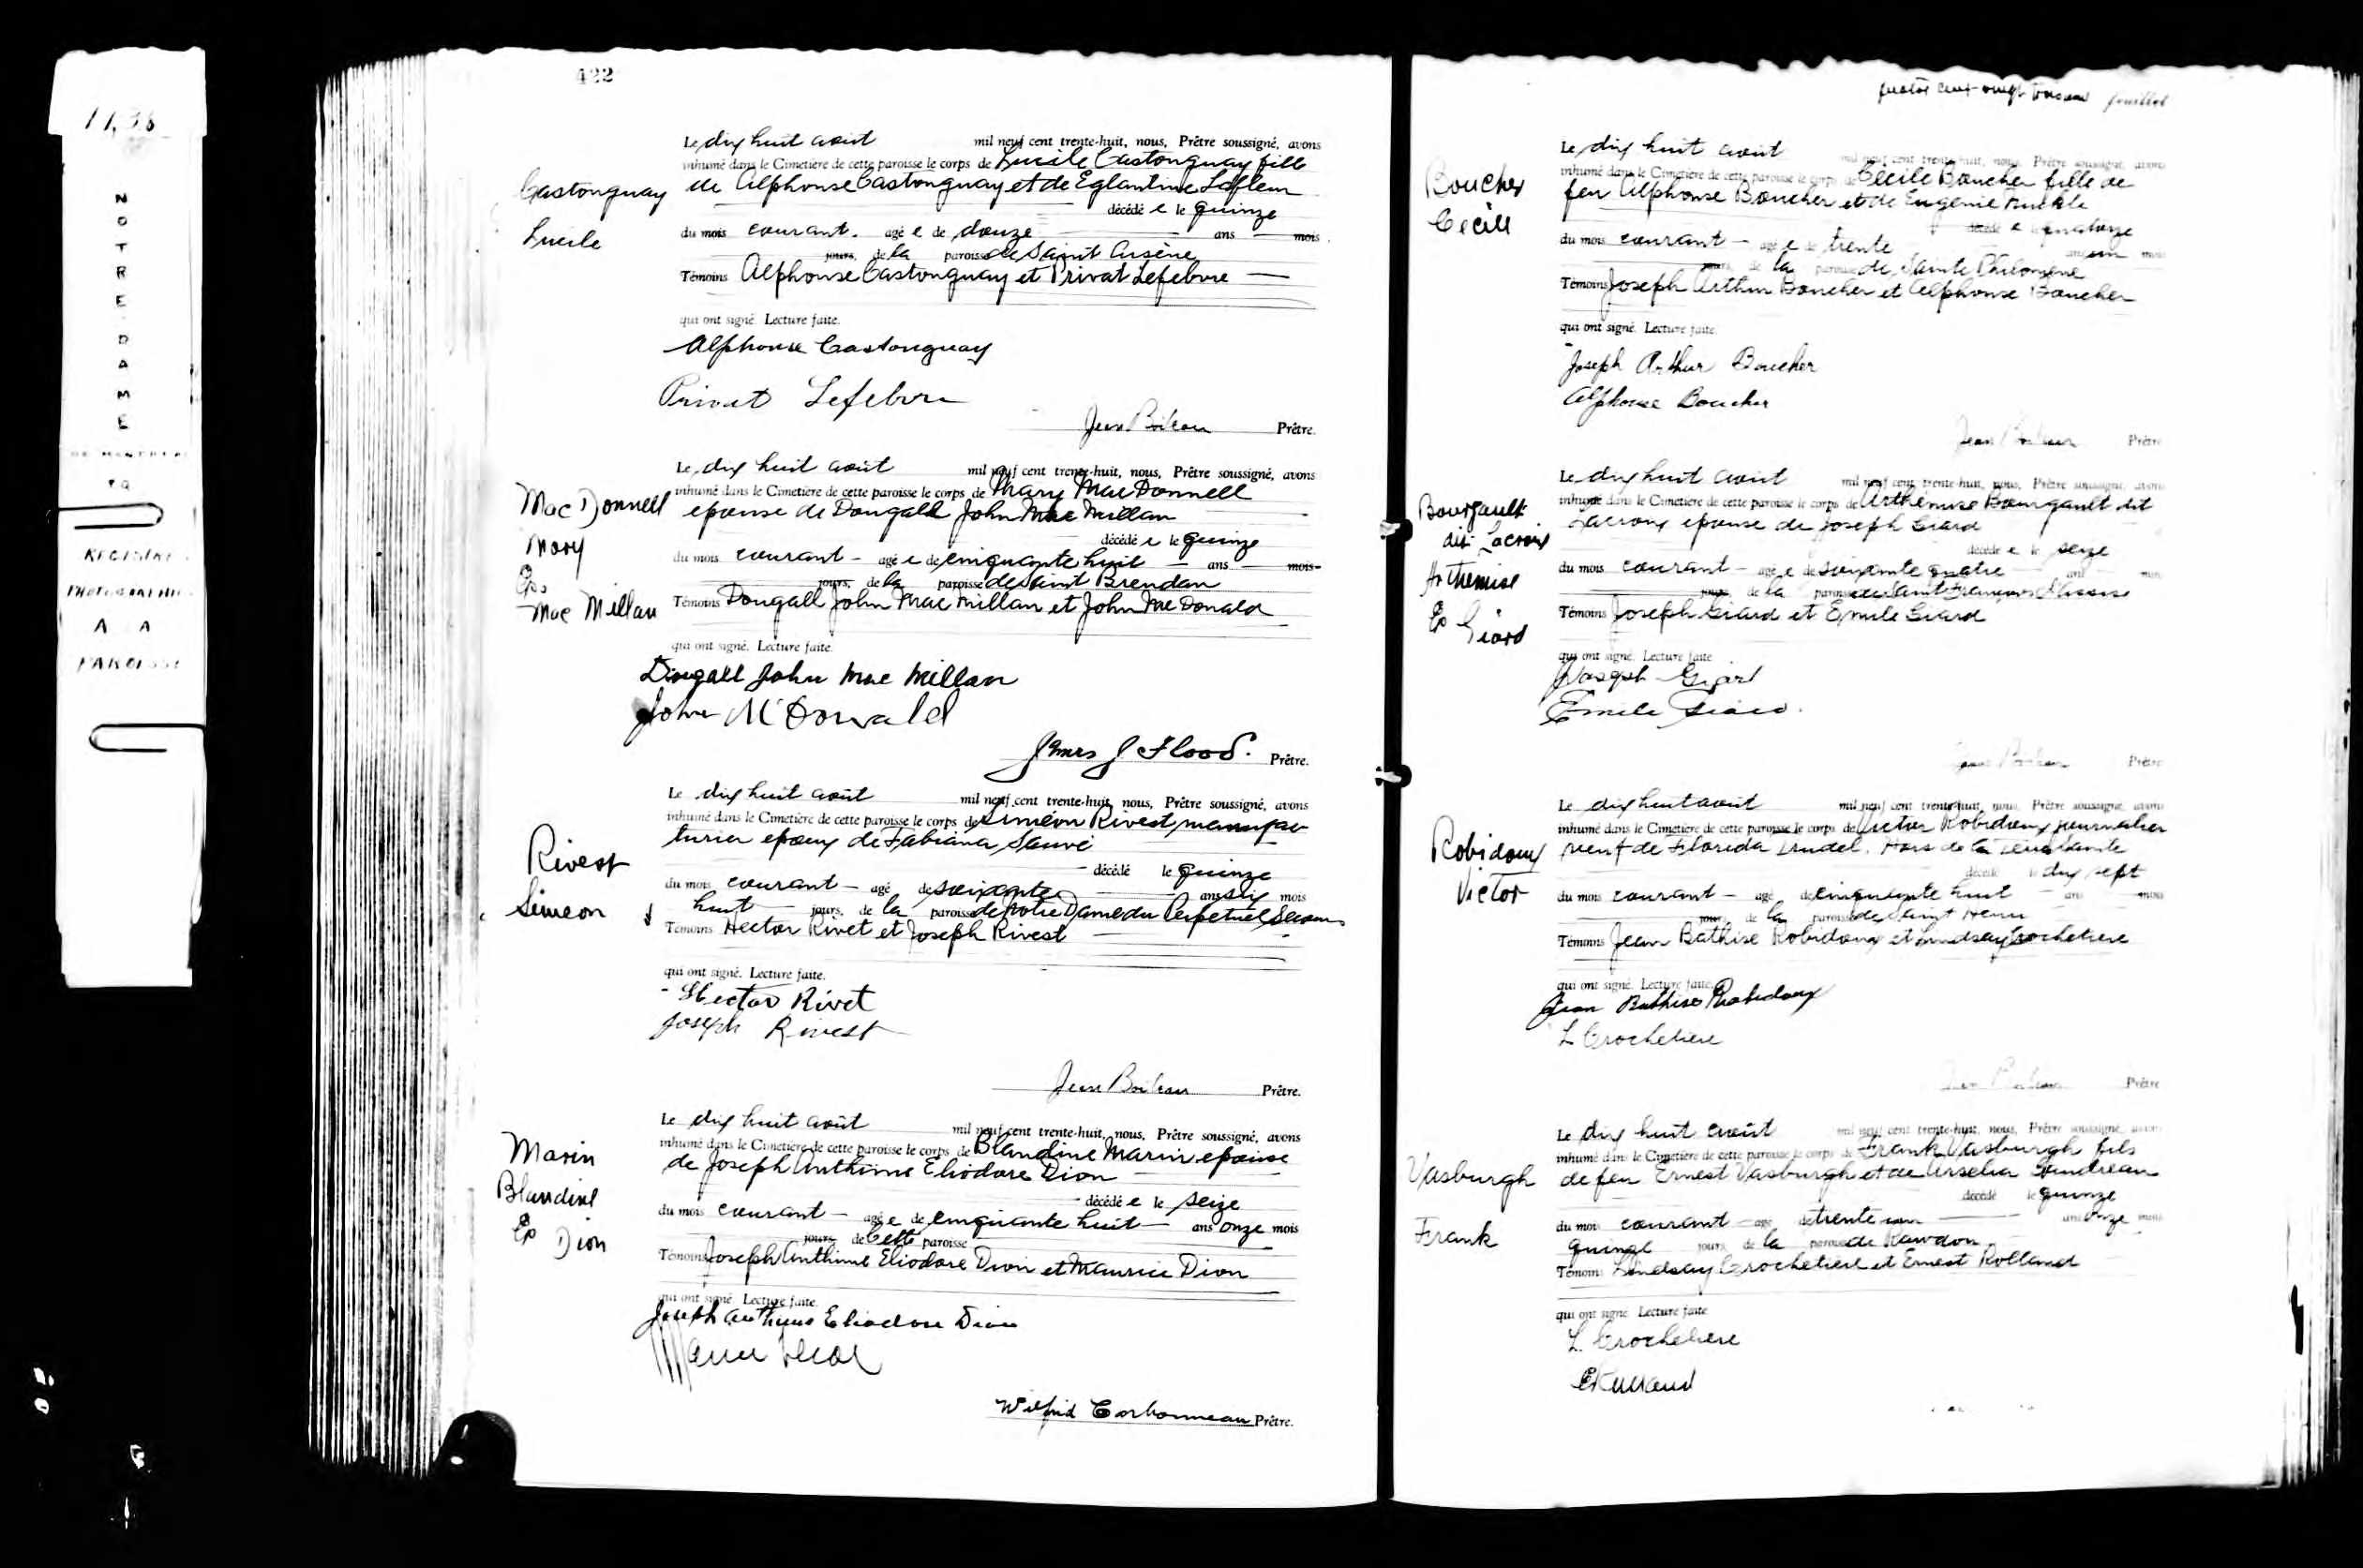 1938
NOTRE DAME
DE MONTREAL
P Q
REGISTRE
PHOTOGRAPHIE
A A
PAROISSE
422
Le dix huit août mil neuf cent trente-huit, nous, Prêtre soussigné, avons
inhumé dans le Cimetière de cette paroisse le corps de Lucile Castonguay fille
Castonguay de Alphonse Castonguay et de Eglantine Lafleur
décédé e le quinze
Lucile du mois courant. agé e de douze ans mois
jours, de la paroisse de Saint Arsène
Témoins Alphonse Castonguay et Privat Lefebvre
qui ont signé. Lecture faite.
Alphonse Castonguay
Privat Lefebvre
Jean Boileau Prêtre.
Le dix huit août mil neuf cent trente-huit, nous, Prêtre soussigné, avons
inhumé dans le Cimetière de cette paroisse le corps de Mary MacDonnell
Mac Donnell épouse de Dougall John MacMillan
décédé e le quinze
Mary du mois courant agé e de cinquante huit ans mois
Eps jours, de la paroisse de Saint Brendan
Mac Millan Témoins Dougall John MacMillan et John McDonald
qui ont signé. Lecture faite.
Dougall John MacMillan
John McDonald
James J Flood. Prêtre.
Le dix huit août mil neuf cent trente-huit, nous, Prêtre soussigné, avons
inhumé dans le Cimetière de cette paroisse le corps de Siméon Rivest, manufac
turier époux de Fabiana Sauvé
Rivest décédé le quinze
du mois courant agé de soixante ans six mois
Simeon huit jours, de la paroisse de Notre Dame du Perpetuel Secours
Témoins Hector Rivet et Joseph Rivest
qui ont signé. Lecture faite.
Hector Rivet
Joseph Rivest
Jean Boileau Prêtre.
Le dix huit août mil neuf cent trente-huit, nous, Prêtre soussigné, avons
inhumé dans le Cimetière de cette paroisse le corps de Blandine Marin épouse
Marin de Joseph Anthime Eliodore Dion
Blandine décédé e le seize
du mois courant agé e de cinquante huit ans onze mois
Ep Dion jours de Cette paroisse
Témoins Joseph Anthime Eliodore Dion et Maurice Dion
qui ont signé. Lecture faite.
Joseph Anthime Eliodore Dion
Wilfrid Carbonneau Prêtre.
quatre cent vingt troisième feuillet
Le dix huit août mil neuf cent trente-huit, nous, Prêtre soussigné, avons
inhumé dans le Cimetière de cette paroisse le corps de Cécile Boucher fille de
Boucher feu Alphonse Boucher et de Eugenie
décédé e quatorze
Cecile du mois courant agé e de trente ans un mois
jours, de la paroisse de Sainte Philomène
Témoins Joseph Arthur Boucher et Alphonse Boucher
qui ont signé. Lecture faite.
Joseph Arthur Boucher
Alphonse Boucher
Jean Boileau Prêtre
Le dix huit août mil neuf cent trente-huit, nous, Prêtre soussigné, avons
inhumé dans le Cimetière de cette paroisse le corps de Arthémise Bourgault dit
Bourgault Lacroix épouse de Joseph Giard
dit Lacroix décédé e le seize
Arthemise du mois courant agé e de soixante quatre ans mois
jours, de la paroisse de Saint François d'Assise
Ep Giard Témoins Joseph Giard et Emile Giard
qui ont signé. Lecture faite
Joseph Giard
Emile Giard.
Jean Boileau Prêtre
Le dix huit août mil neuf cent trente-huit, nous, Prêtre soussigné, avons
inhumé dans le Cimetière de cette paroisse le corps de Victor Robidoux journalier
Robidoux veuf de Florida Trudel.
décédé le dix sept
Victor du mois courant agé de cinquante huit ans mois
jours, de la paroisse de Saint Henri
Témoins Jean Bathise Robidoux et Lindsay Crochetiere
qui ont signé. Lecture faite.
Jean Bathise Robidoux
L Crochetiere
Jean Boileau Prêtre
Le dix huit août mil neuf cent trente-huit, nous, Prêtre soussigné, avons
inhumé dans le Cimetière de cette paroisse le corps de Frank Vasburgh fils
Vasburgh de feu Ernest Vasburgh et de Urselia Gaudreau
décédé le quinze
Frank du mois courant agé de trente ans onze mois
quinze jours, de la paroisse de Rawdon
Témoins Lindsay Crochetiere et Ernest Rolland
qui ont signé. Lecture faite
L. Crochetiere